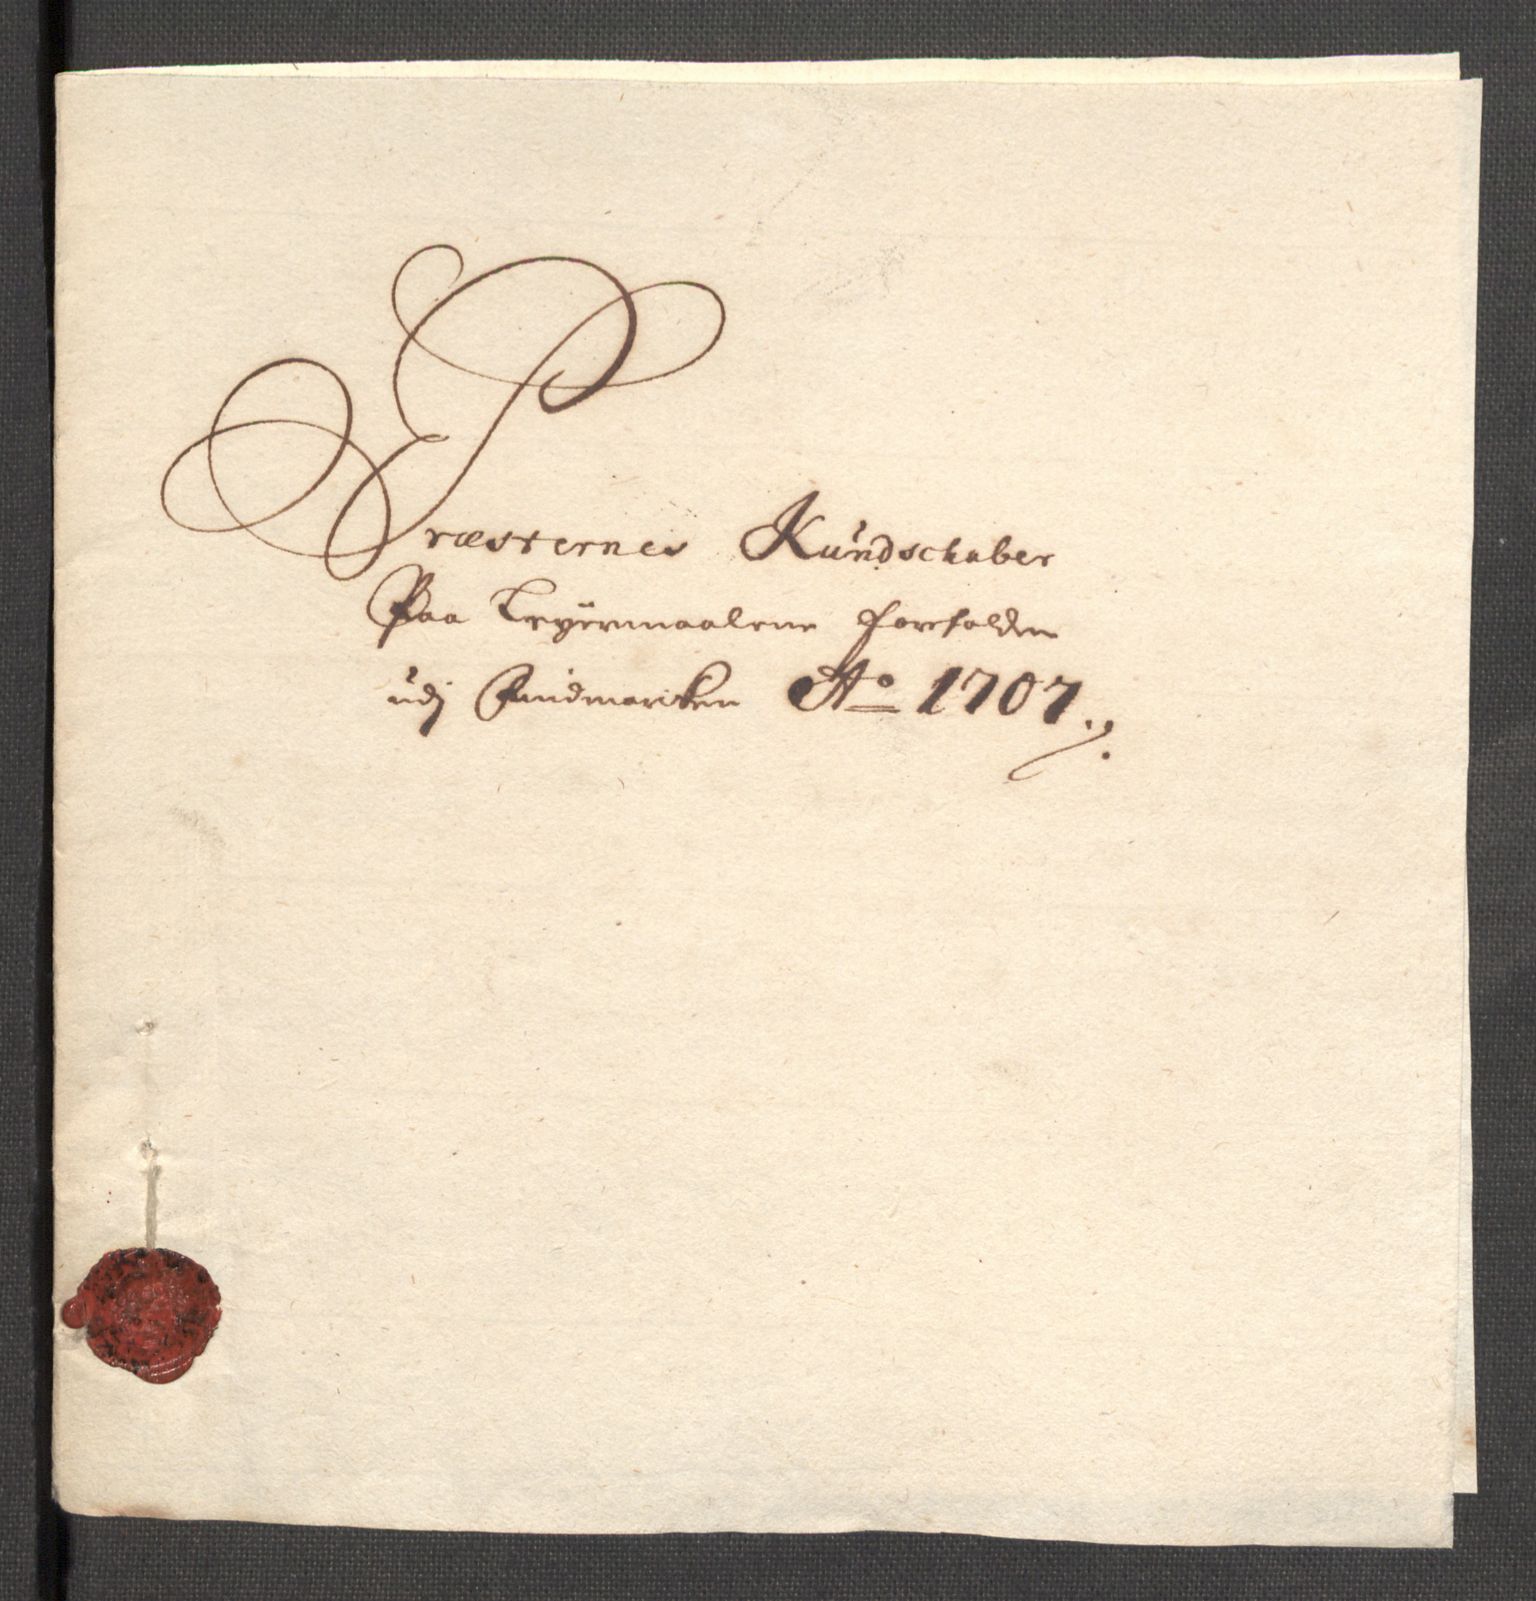 Præsternes Kundschaber
Paa Leyermaalene forfalden
udj Findmarcken Ao 1707